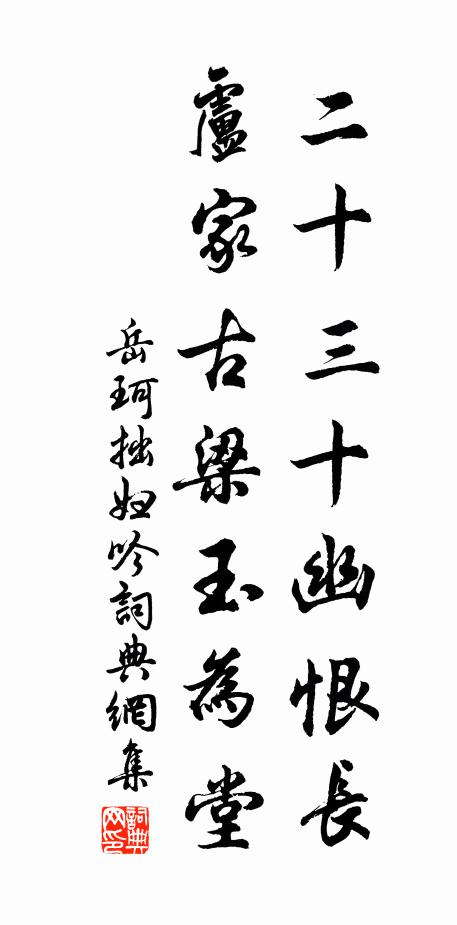 二十三十幽恨長
盧家古梁玉為堂
岳珂拙妲吟詞典網集
詞典網印